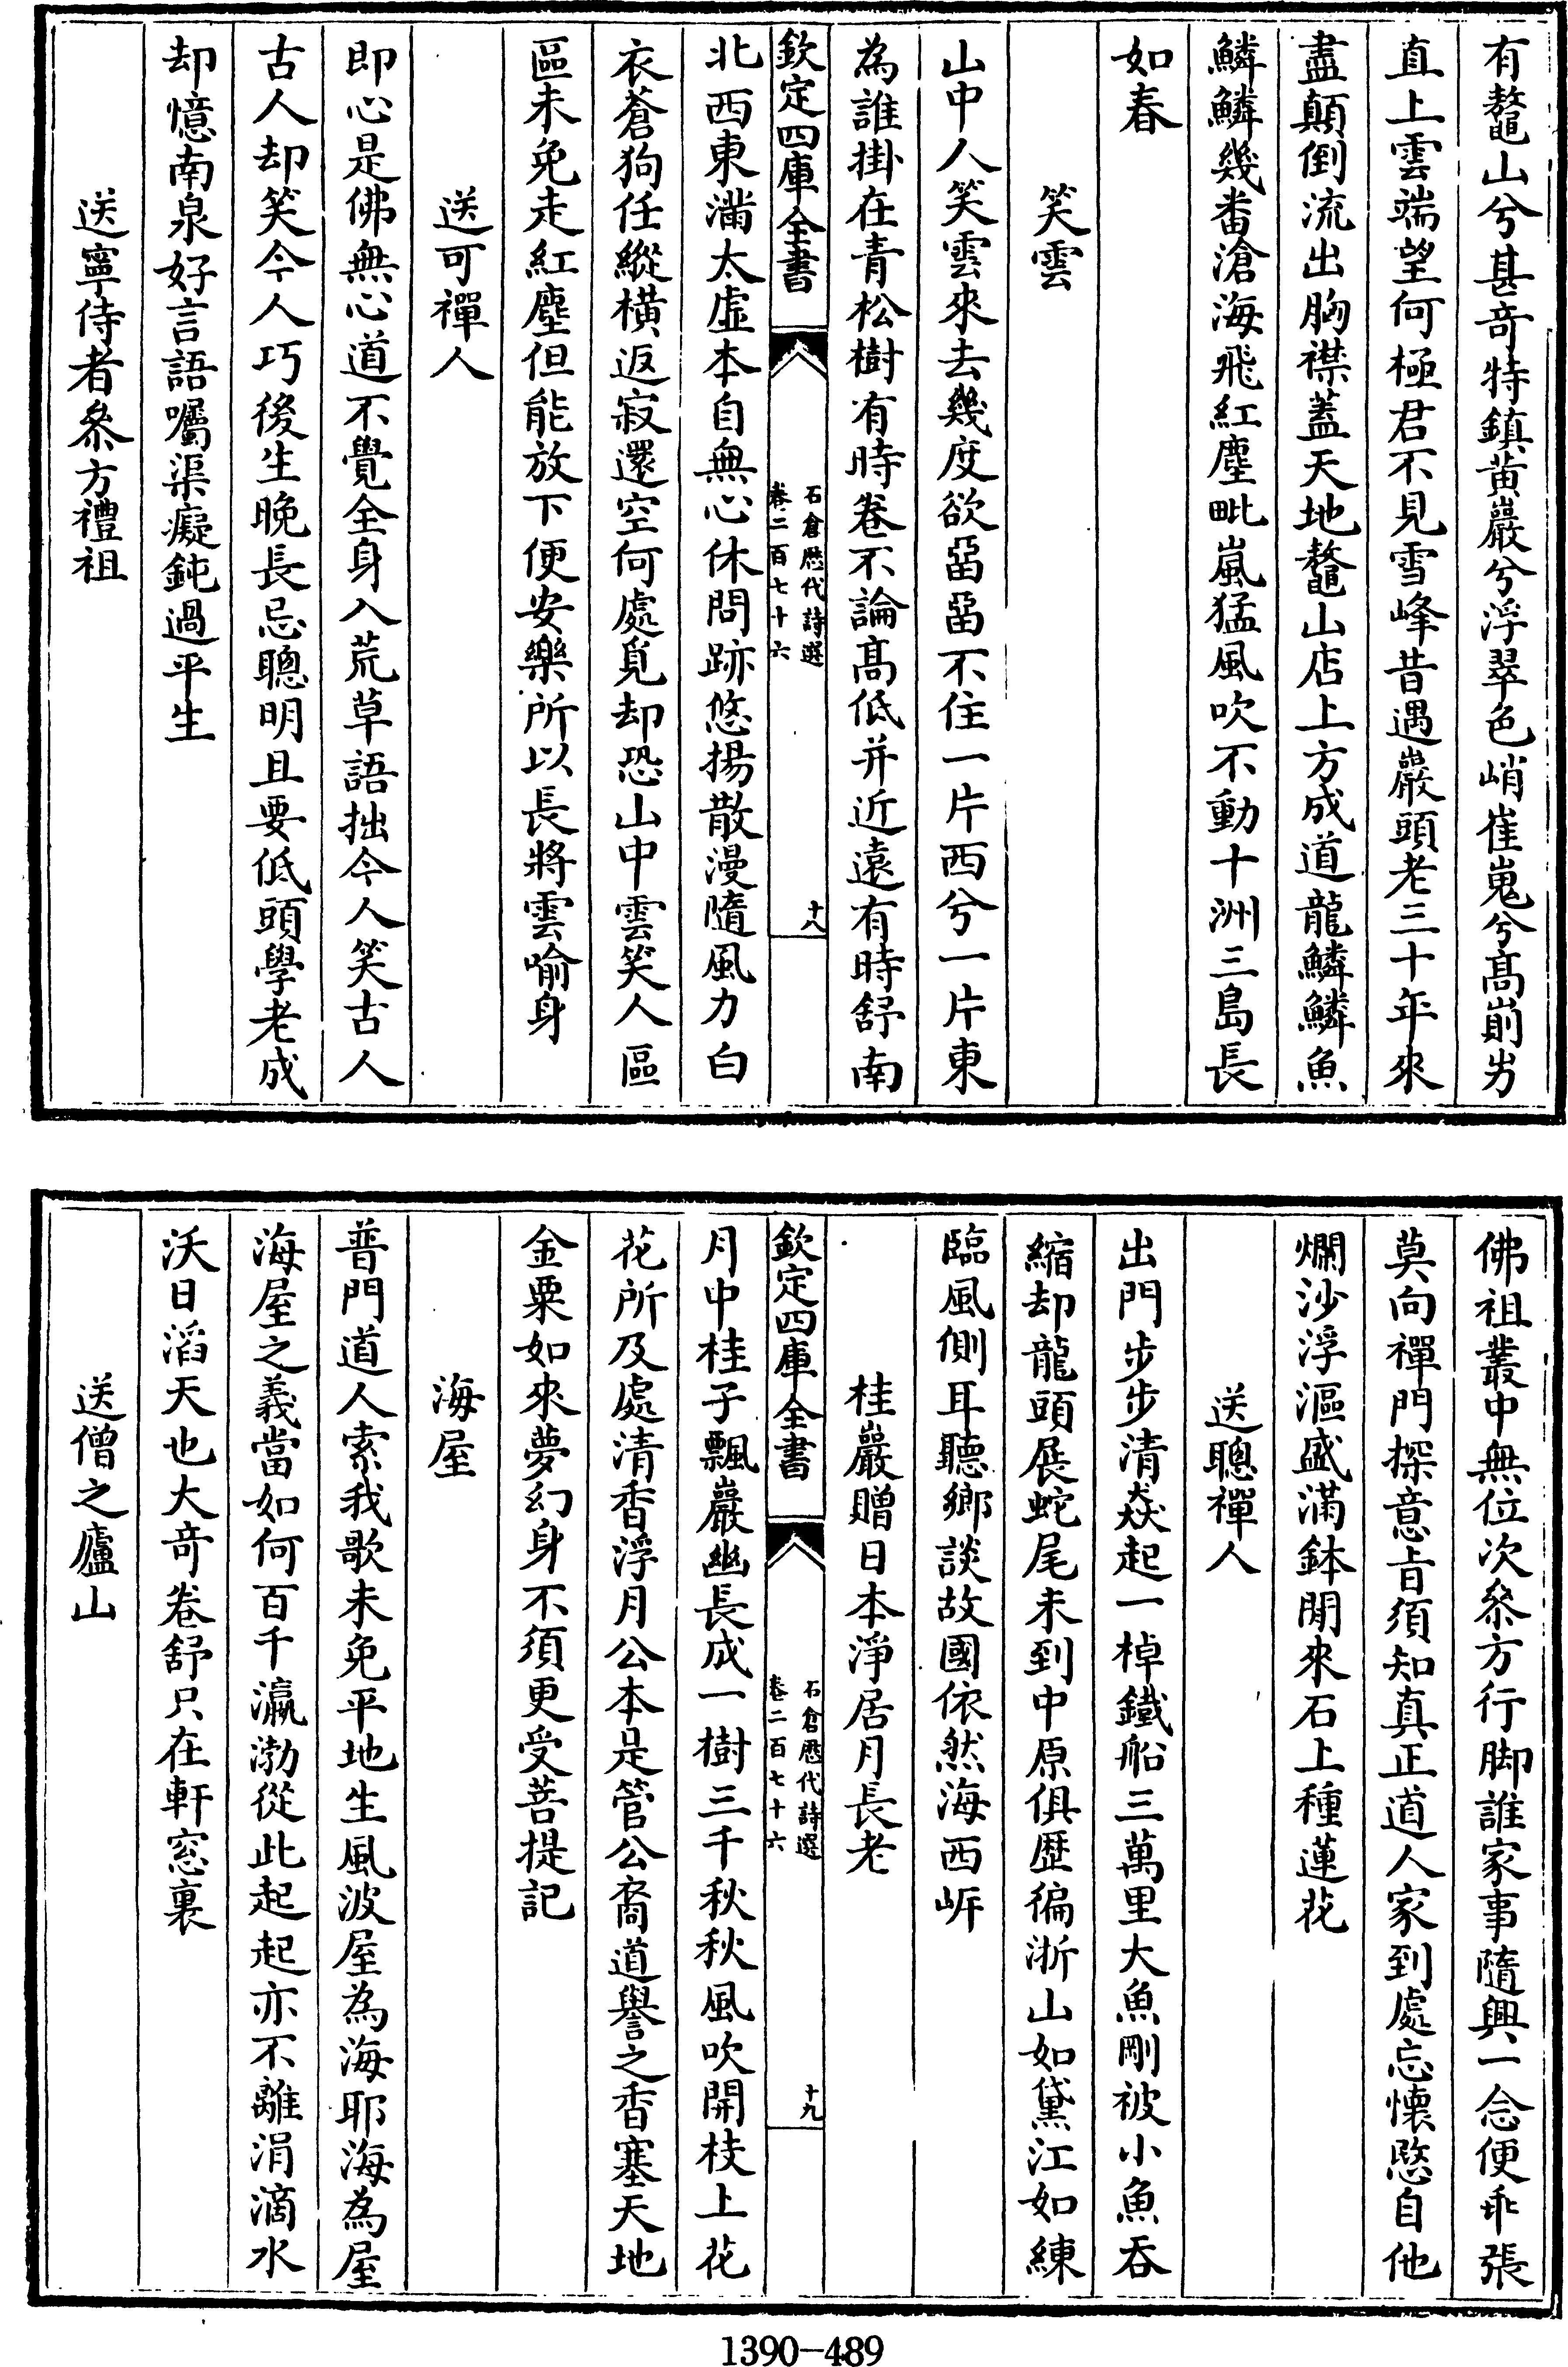 有鼇山兮甚竒特鎮黃巖兮浮翠色峭崔嵬兮髙崱屴
直上雲端望何極君不見雪峰昔遇巖頭老三十年來
盡顛倒流出胸襟蓋天地鼇山店上方成道龍鱗鱗魚
鱗鱗幾畨滄海飛紅塵毗嵐猛風吹不動十洲三島長
如春
笑雲
山中人笑雲來去幾度欲畱畱不住一片西兮一片東
為誰掛在青松樹有時卷不論髙低并近遠有時舒南
欽定四庫全書
石倉歴代詩選
卷二百七十六
十八
北西東滿太虛本自無心休問跡悠揚散漫隨風力白
衣蒼狗任縱横返寂還空何處覓却恐山中雲笑人區
區未免走紅塵但能放下便安樂所以長將雲喻身
送可禪人
即心是佛無心道不覺全身入荒草語拙今人笑古人
古人却笑今人巧後生晚長忌聰明且要低頭學老成
却憶南泉好言語囑渠癡鈍過平生
送寧侍者叅方禮祖
佛祖叢中無位次叅方行脚誰家事隨興一念便乖張
莫向禪門探意㫖須知真正道人家到處忘懷愍自他
爛沙浮漚盛滿鉢閒來石上種蓮花
送聰禪人
出門步步清猋起一棹鐵船三萬里大魚剛被小魚吞
縮却龍頭展蛇尾未到中原俱歴徧浙山如黛江如練
臨風側耳聽鄉談故國依然海西㟁
桂巖贈日本淨居月長老
欽定四庫全書
石倉歴代詩選
卷二百七十六
十九
月中桂子飄巖幽長成一樹三千秋秋風吹開枝上花
花所及處清香浮月公本是管公裔道譽之香塞天地
金粟如來夢幻身不須更受菩提記
海屋
普門道人索我歌未免平地生風波屋為海耶海為屋
海屋之義當如何百千瀛渤從此起起亦不離涓滴水
沃日滔天也大竒卷舒只在軒窓裏
送僧之廬山
1390-489